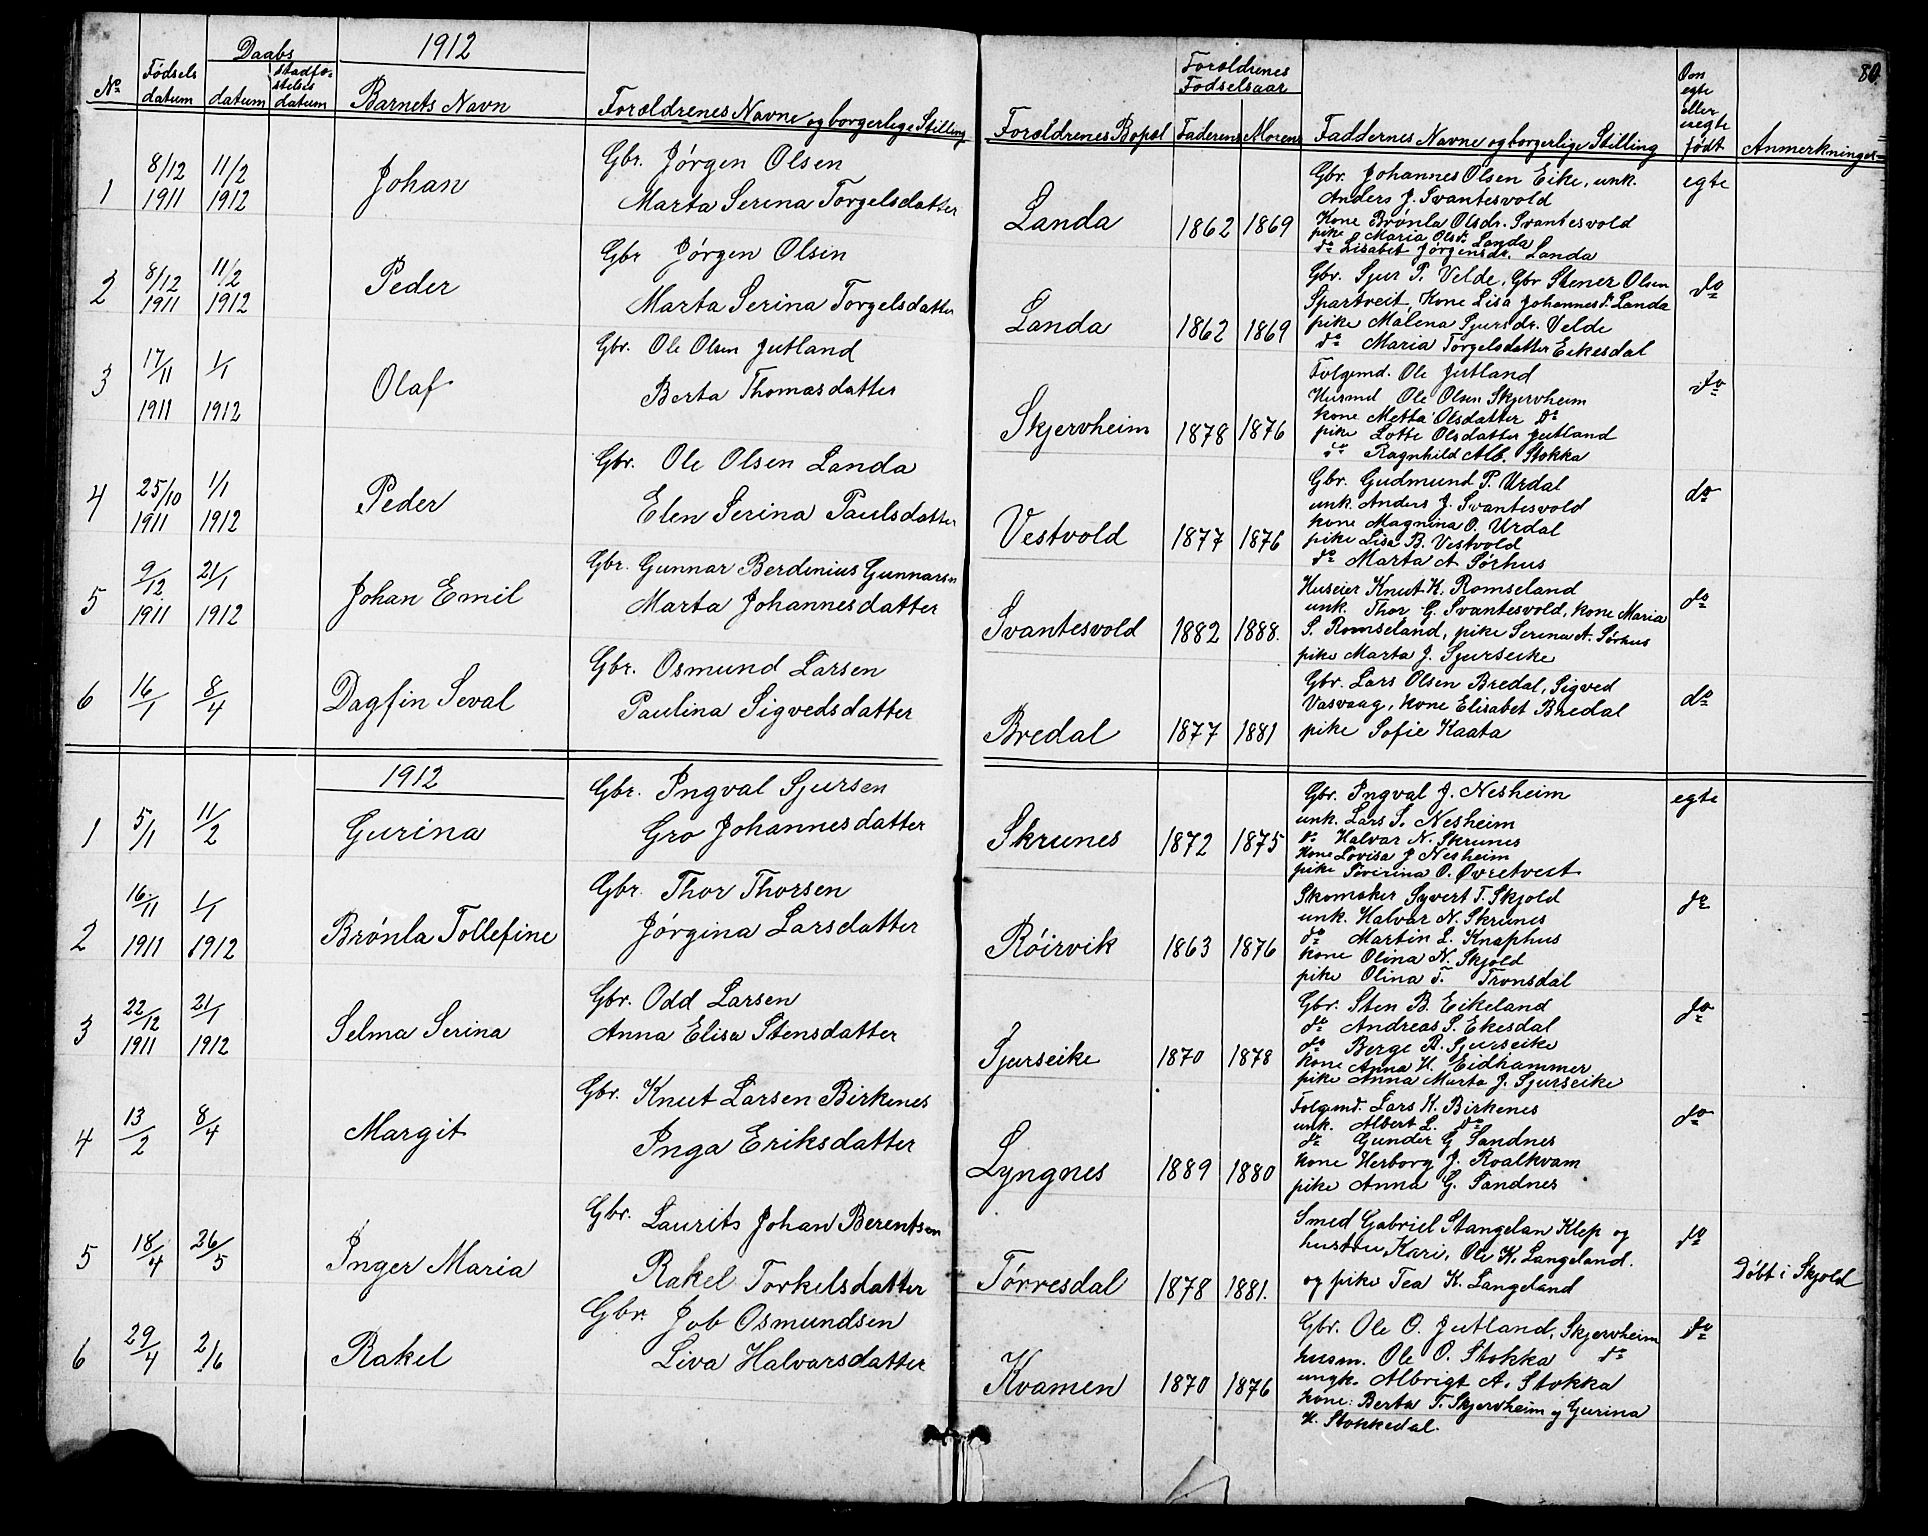 1912
80
No
Fødsels datum
Daabs datum
stadfæstelses datum
Barnets Navn
Forældrenes Navne og borgerlige Stilling
Forældrenes Bopæl
Forældrenes Fødselsaar
Faderens
Morens
Faddernes Navne og borgerlige Stilling
Om egte eller uegte født
Anmerkninger
1
8/12 1911
11/2 1912
Johan
Gbr. Jørgen Olsen
Marta Serina Torgelsdatter
Landa
1862
1869
Gbr. Johannes Olsen Eike, unk.
Anders J. Svantesvold
Kone Brønla Olsdr. Svantesvold
pike Maria Olsdr. Landa
do Lisabet Jørgensdr. Landa
egte
2
8/12 1911
11/2 1912
Peder
Gbr Jørgen Olsen
Marta Serina Torgelsdatter
Landa
1862
1869
Gbr. Sjur P. Velde, Gbr Stener Olsen
Spartveit, Kone Lisa Johannesdr. Landa
pike Malena Sjursdr. Velde
do Maria Torgelsdatter Eikesdal
do
3
17/11 1911
1/1 1912
Olaf
Gbr. Ole Olsen Jutland
Berta Thomasdatter
Skjervheim
1878
1876
Folgemd. Ole Jutland
Husmd Ole Olsen Skjervheim
kone Metta Olsdatter do
pike Lotte Olsdatter Jutland
do Ragnhild Alb. Stokka
do
4
25/10 1911
1/1 1912
Peder
Gbr. Ole Olsen Landa
Elen Serina Paulsdatter
Vestvold
1877
1876
Gbr. Gudmund P. Urdal
unk. Anders J. Svantesvold
kone Magnina O. Urdal
pike Lisa B. Vestvold
do Marta A Sørhus
do
5
9/12 1911
21/1 1912
Johan Emil
Gbr. Gunnar Berdinius Gunnarsn
Marta Johannesdatter
Svantesvold
1882
1888.
Huseier Knut K. Romseland
unk. Thor G. Svantesvold, kone Maria
S. Romseland, pike Serina A. Sørhus
pike Marta J. Sjurseike
do
6
16/1
8/4
Dagfin Seval
Gbr. Osmund Larsen
Paulina Sigvedsdatter
Bredal
1877
1881
Gbr. Lars Olsen Bredal, Sigved
Vasvaag, kone Elisabet Bredal
pike Sofie Kaata
do
1912
1
5/1
11/2
Gurina
Gbr. Ingval Sjursen
Gro Johannesdatter
Skrunes
1872
1875
Gbr. Ingval J. Nesheim
unk. Lars S. Nesheim
do Halvar N. Skrunes
Kone Lovisa J Nesheim
pike Severina O. Øvretveit
egte
2
16/11 1911
1/1 1912
Brønla Tollefine
Gbr. Thor Thorsen
Jørgina Larsdatter
Røirvik
1863
1876
Skomaker Syvert T. Skjold
unk. Halvar N. Skrunes
do Martin L. Knaphus
kone Olina N. Skjold
pike Olina T. Tronsdal
do
3
22/12 1911
21/1 1912
Selma Serina
Gbr. Odd Larsen
Anna Elisa Stensdatter
Sjurseike
1870
1878
Gbr. Sten B. Eikeland
do Andreas S. Ekesdal
do Berge B. Sjurseike
kone Anna H. Eidhammer
pike Anna Marta J. Sjurseike
do
4
13/2
8/4
Margit
Gbr. Knut Larsen Birkenes
Inga Eriksdatter
Lyngnes
1889
1880
Folgmd. Lars K. Birkenes
unk. Albert L. do
do Gunder G Sandnes
kone Herborg J. Roalkvam
pike Anna G. Sandnes
do
5
18/4
26/5
Inger Maria
Gbr. Laurits Johan Berentsen
Rakel Torkelsdatter
Tørresdal
1878
1881.
Smed Gabriel Stangelan Klep og
hustru Kari, Ole K. Langeland.
og pike Tea K. Langeland
do
Døbt i Skjold
6
29/4
2/6
Rakel
Gbr. Job Osmundsen
Liva Halvarsdatter
Kvamen
1870
1876
Gbr. Ole O. Jutland, Skjervheim
husm. Ole O. Stokka do
ungk. Albrigt A. Stokka
kone: Berta T. Skjervheim og Gurina
K. Stokkedal.
do